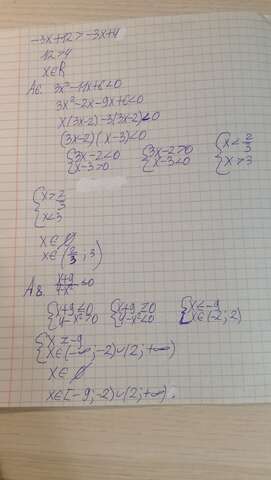 -3x+12>-3x+4
12>4
x∈R
A6. 3x²-11x+6<0
3x²-2x-9x+6<0
x(3x-2)-3(3x-2)<0
(3x-2)(x-3)<0
{3x-2<0 {3x-2>0 {x<2/3
{x-3>0 {x-3<0 {x>3
{x>2/3
{x<3
x∈∅
x∈(2/3;3)
A8. x+9/4-x²≤0
{x+9≤0 {x+9≥0 {x≤-9
{4-x²>0 {4-x²<0 {x∈(-2;2)
{x≥-9
{x∈(-∞;-2)∪(2;+∞)
x∈∅
x∈[-9;-2)∪(2;+∞).